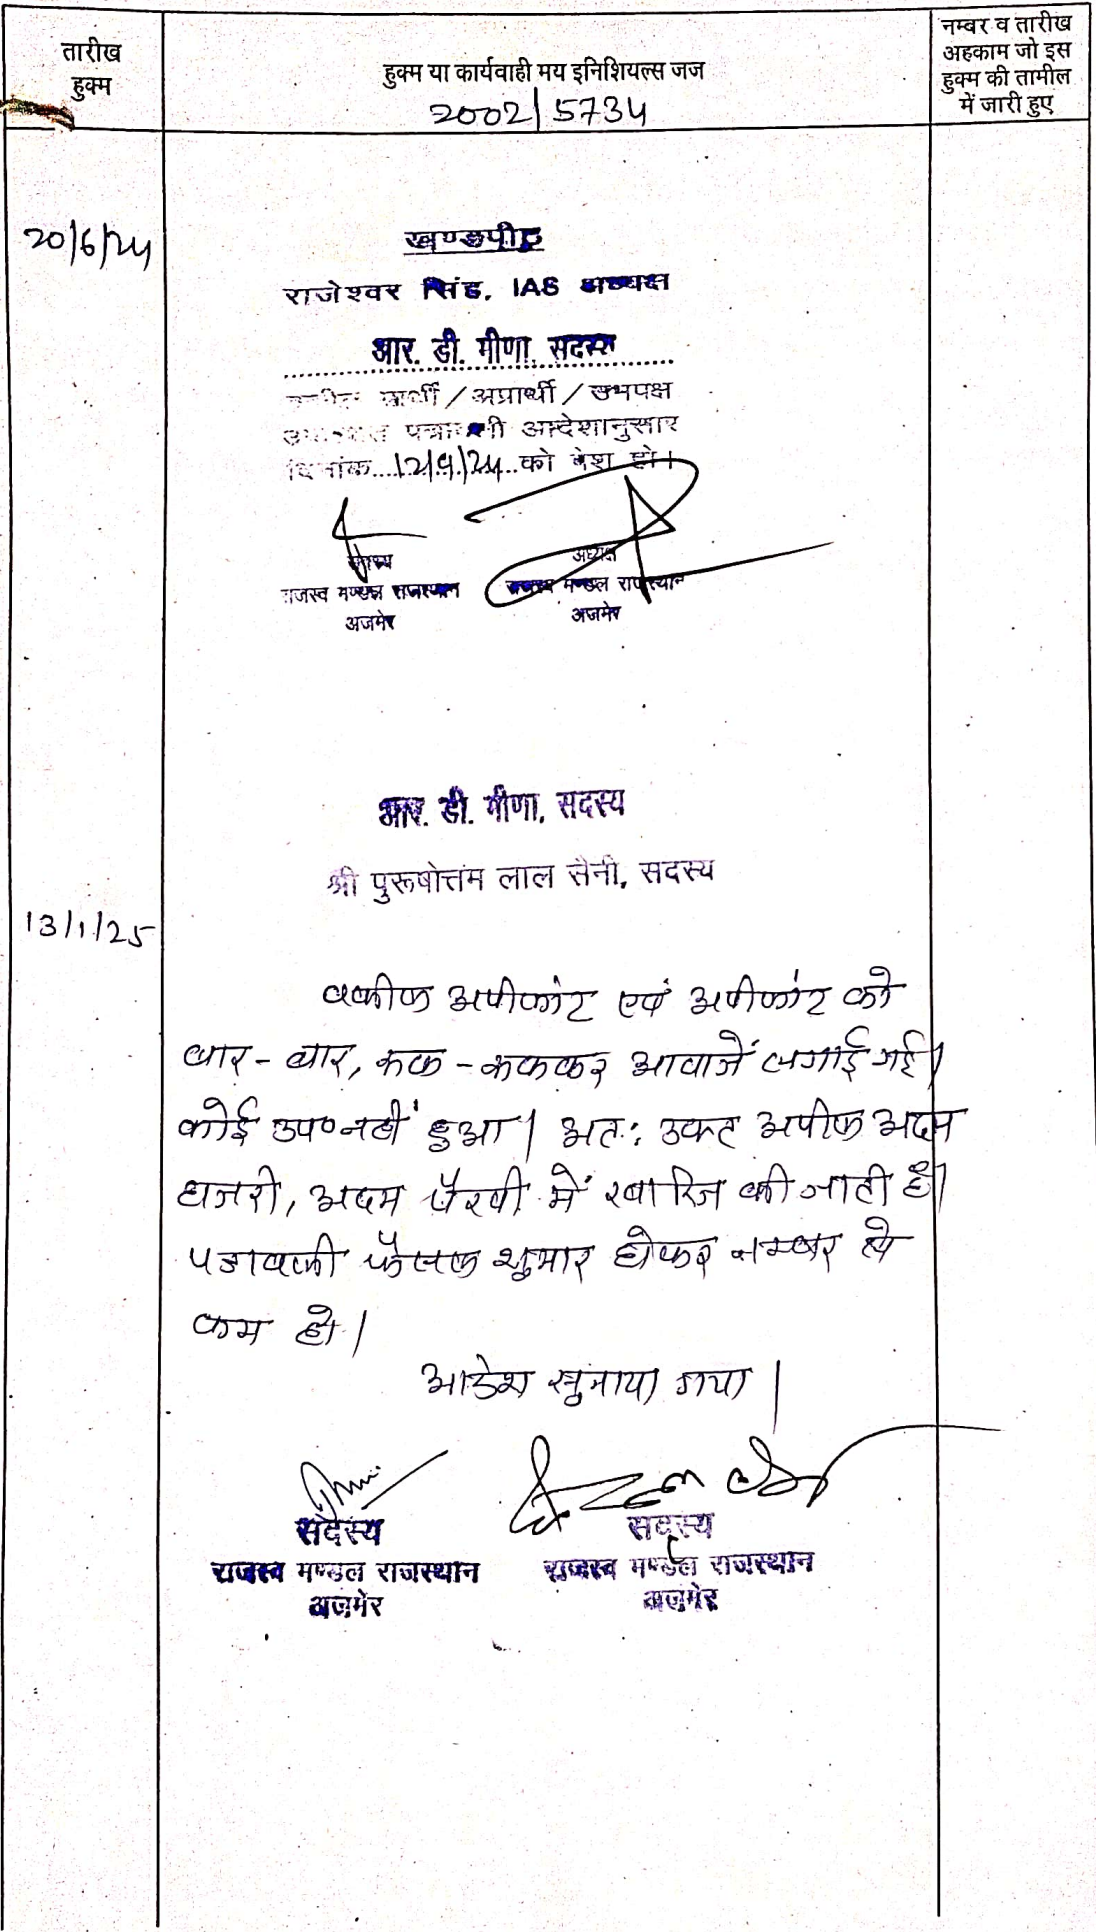 तारीख
हुक्म
हुक्म या कार्यवाही मय इनिशियल्स जज
2002/5734
नम्बर व तारीख
अहकाम जो इस
हुक्म की तामील
में जारी हुए
20/6/24
खण्डपीठ
राजेश्वर सिंह, IAS अध्यक्ष
आर. डी. मीणा, सदस्य
प्रार्थी / अप्रार्थी / उभयपक्ष
पत्रावली आदेशानुसार
दिनांक...12/9/24...को पेश हो।
सदस्य
राजस्व मण्डल राजस्थान
अजमेर
अध्यक्ष
राजस्व मण्डल राजस्थान
अजमेर
आर. डी. मीणा, सदस्य
श्री पुरूषोत्तम लाल सैनी, सदस्य
13/1/25
वकील अपीलांट एवं अपीलांट को
बार-बार, रूक-रूककर आवाजें लगाई गई।
कोई उप० नहीं हुआ। अतः उक्त अपील अदम
हाजरी, अदम पैरवी में खारिज की जाती है।
पत्रावली फैसल शुमार होकर नम्बर से
कम हो।
आदेश सुनाया गया।
सदस्य
राजस्व मण्डल राजस्थान
अजमेर
सदस्य
राजस्व मण्डल राजस्थान
अजमेर